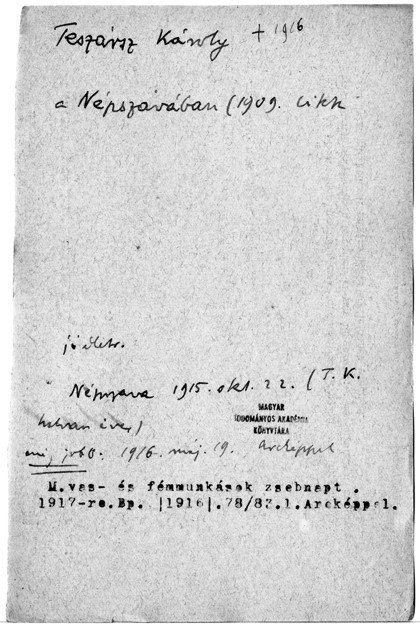 Teszársz Károly + 1916
a Népszavában (1909. cikk
jó életr.
Népszava 1915. okt. 22. (T. K.
MAGYAR
TUDOMÁNYOS AKADÉMIA
KÖNYVTÁRA
hatvan éves)
még jobb. 1916. máj. 19. arcképpel
M.vas- és fémmunkások zsebnapt.
1917-re.Bp. |1916|.78/83.l.Arcképpel.